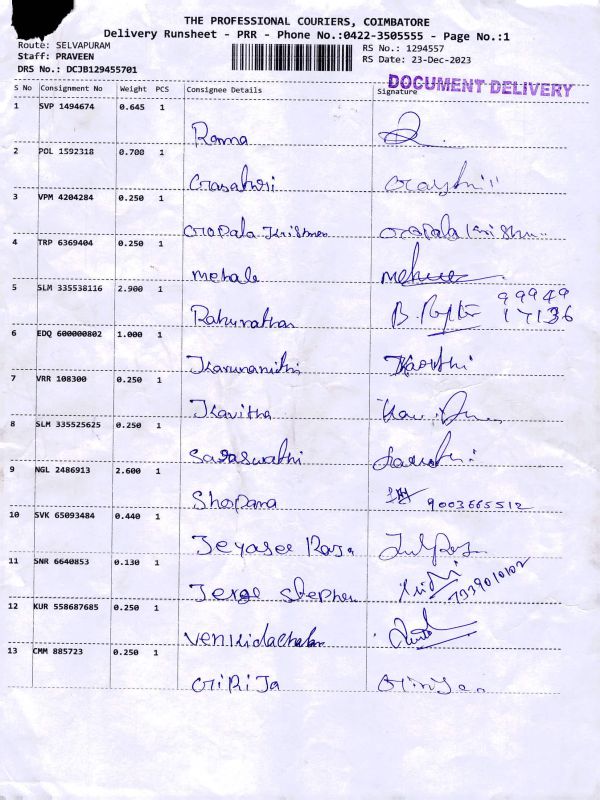 THE PROFESSIONAL COURIERS, COIMBATORE
Delivery Runsheet - PRR - Phone No.:0422-3505555 - Page No.:1
Route: SELVAPURAM
RS No.: 1294557
Staff: PRAVEEN
RS Date: 23-Dec-2023
DRS No.: DCJB129455701
DOCUMENT DELIVERY
S No Consignment No Weight PCS Consignee Details Signature
1 SVP 1494674 0.645 1
Rama
2 POL 1592318 0.700 1
3 VPM 4204284 0.250 1
Gopala Krishnan
4 TRP 6369404 0.250 1
mehala
5 SLM 335538116 2.900 1
Ranunathan 99949
17136
6 EDQ 600000802 1.000 1
Karunanithi
7 VRR 108300 0.250 1
Kavitha
8 SLM 335525625 0.250 1
Saraswathi
9 NGL 2486913 2.600 1
Shopana 9003665512
10 SVK 65093484 0.440 1
Jeyasee Raja
11 SNR 6640853 0.130 1
stephen
12 KUR 558687685 0.250 1
13 CMM 885723 0.250 1
GIRIJA